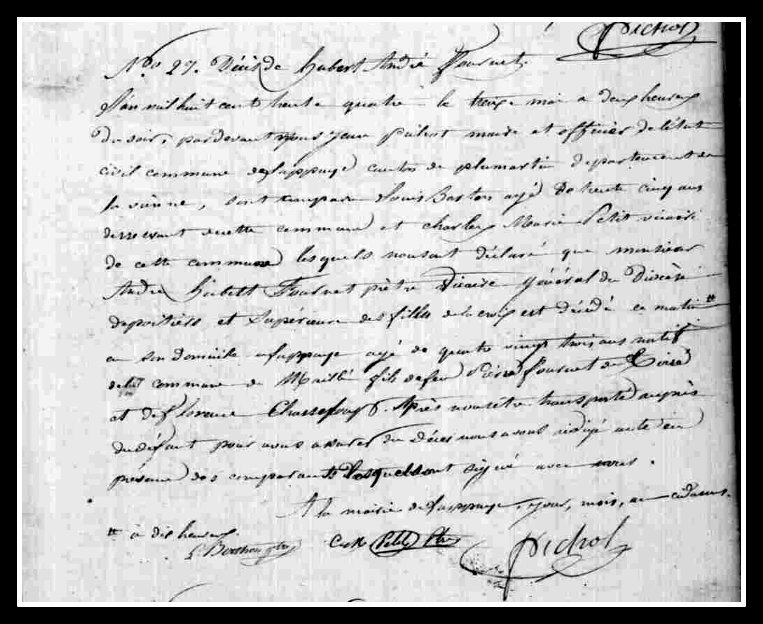 Pichot
N° 27. Décès de hubert André Fournet.
L'an mil huit cent trente quatre le treize mai a deux heures
du soir, pardevant nous Jean maire et officier de l'état
civil commune de lappuye canton de plumartin departement de
la vienne, sont comparu Louis ayé de trente cinq ans
deservant de cette commune et charles Marie Petit vicaire
de cette commune lesquels nous ont déclaré que monsieur
André hubert Fournet prêtre Vicaire général du Diocèse
de poitiers et Supérieur des filles de la croix est décédé ce matin #
en son domicile a lappuye agé de quatre vingt trois ans natif
de la commune de Maillé fils de feu Pierre fournet de Thoizé
et de florence Chasseloup. Après nous être transporté auprès
du défunt pour nous assurer du décès nous avons rédigé acte en
présence des comparants lesquels ont signé avec nous.
A la mairie de lappuye, jour, mois, an cidessus.
# à dix heures
Petit Ptre
Pichot